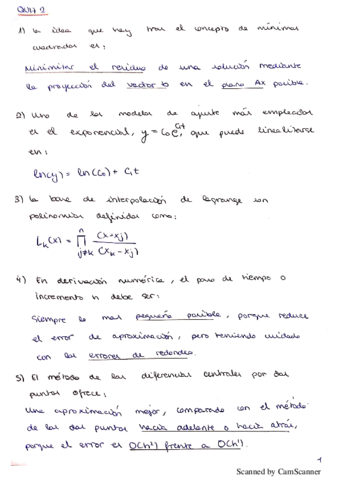 QUIZ 2
1) la idea que hay tras el concepto de mínimos
cuadrados es:
Minimizar el residuo de una solución mediante
la proyección del vector b en el plano Ax posible.
2) Uno de los modelos de ajuste más empleados
es el exponencial, y = C₀e^{C₁t}, que puede linealizarse
en:
ln(y) = ln(C₀) + C₁t
3) la base de interpolación de lagrange son
polinomios definidos como:
L_k(x) = ∏_{j≠k}^{n} (x-x_j)/(x_k - x_j)
4) En derivación numérica, el paso de tiempo o
incremento h debe ser:
Siempre lo más pequeño posible, porque reduce
el error de aproximación, pero teniendo cuidado
con los errores de redondeo.
5) El método de las diferencias centrales por dos
puntos ofrece:
Una aproximación mejor, comparado con el método
de los dos puntos hacia adelante o hacia atrás,
porque el error es O(h²) frente a O(h¹).
1
Scanned by CamScanner